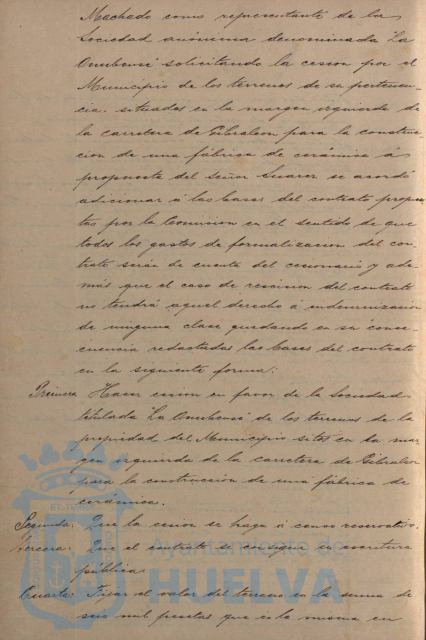 Machado como representante de la
Sociedad anónima denominada "La
Onubense" solicitando la cesion por el
Municipio de los terrenos de su pertenen-
cia situados en la margen izquierda de
la carretera de Gibraleon para la construc-
cion de una fábrica de cerámica á
propuesta del señor Suarez se acordó
adicionar á las bases del contrato propues-
tas por la Comision en el sentido de que
todos los gastos de formalizacion del con-
trato serán de cuenta del cesionario y ade-
más que el caso de rescision del contrato
no tendrá aquel derecho á indemnizacion
de ninguna clase quedando en su conse-
cuencia redactadas las bases del contrato
en la siguiente forma:
Primera Hacer cesion en favor de la Sociedad
titulada "La Onubense" de los terrenos de la
propiedad del Municipio sitos en la mar-
gen izquierda de la carretera de Gibraleon
para la construccion de una fábrica de
cerámica.
Segunda: Que la cesion se haga á censo reservativo.
Tercera: Que el contrato se consigne en escritura
pública.
Cuarta: Fijar el valor del terreno en la suma de
seis mil pesetas que es la misma en
Ayuntamiento de
HUELVA